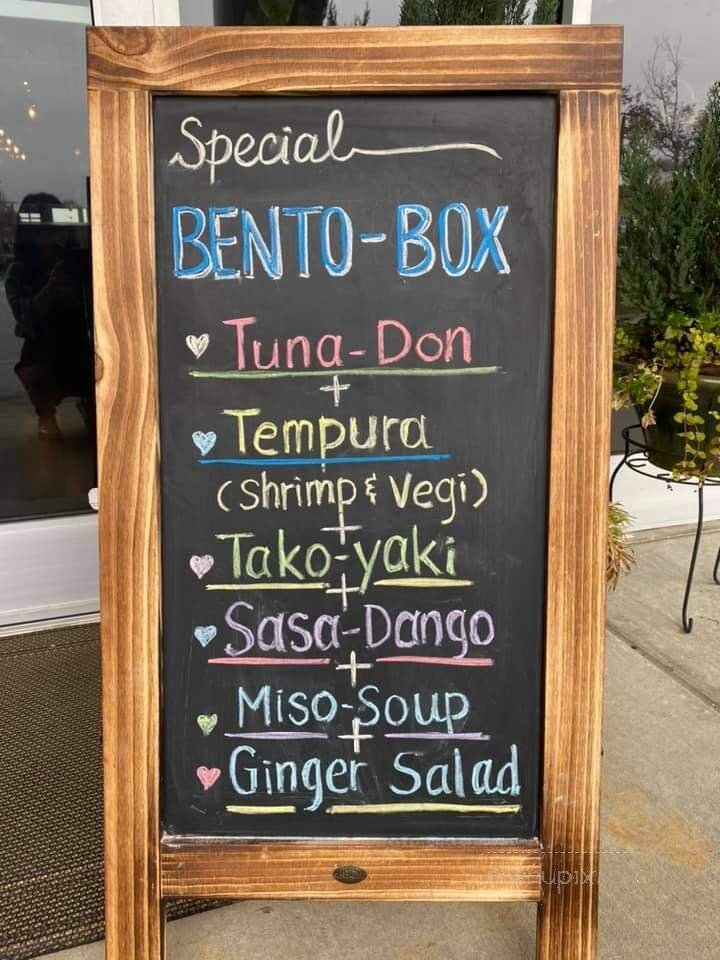 Special
BENTO-BOX
Tuna-Don
+
Tempura
(Shrimp & Vegi)
+
Tako-yaki
+
Sasa-Dango
+
Miso-Soup
+
Ginger Salad